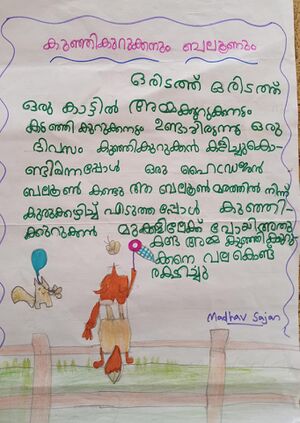 കുഞ്ഞികുറുക്കനും ബലൂണും
ഒരിടത്ത് ഒരിടത്ത്
ഒരു കാട്ടിൽ അമ്മകുറുക്കനും
കുഞ്ഞി കുറുക്കനും ഉണ്ടായിരുന്നു ഒരു
ദിവസം കുഞ്ഞികുറുക്കൻ കളിച്ചുകൊ
ണ്ടിരിന്നപ്പോൾ ഒരു ഹൈഡ്രജൻ
ബലൂൺ കണ്ടു ആ ബലൂൺ മരത്തിൽ നിന്ന്
കുരുക്കഴിച്ച് എടുത്തപ്പോൾ കുഞ്ഞി-
ക്കുറുക്കൻ മുകളിലേക്ക് പോയി അതു
കണ്ട അമ്മ കുഞ്ഞിക്കുറു
ക്കനെ വല കൊണ്ട്
രക്ഷിച്ചു
Madhav Sajan